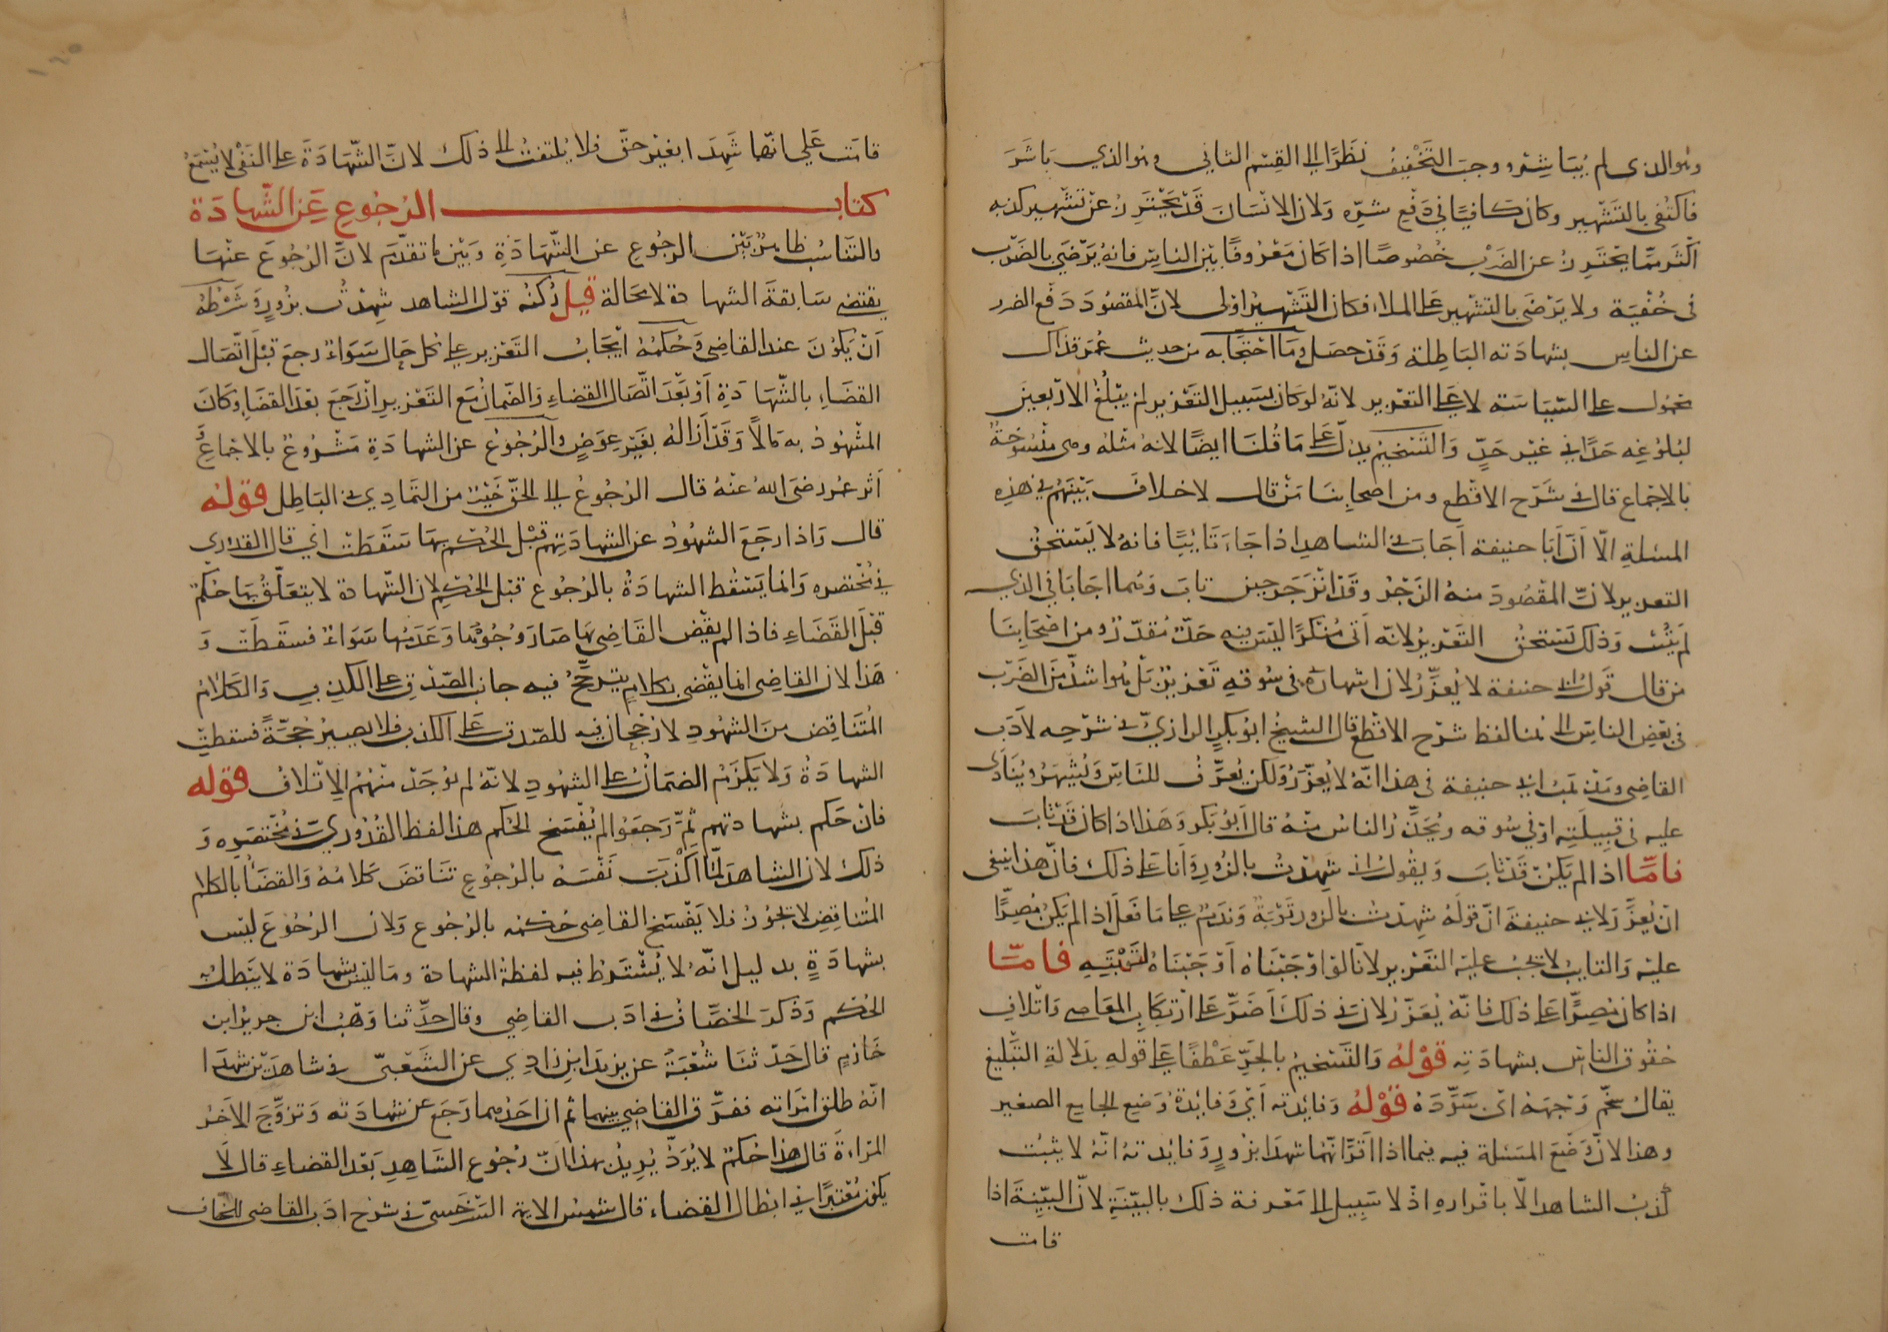 وهو الذى لم يُبَاشِرْه وجبَ التَخْفِيفُ نَظَرًا الى القِسْم الثاني وهو الذي بَاشَرَ
فاكتُفى بالتَشْهِير وكان كافيًا فى دَفْع شرّه وَلان الانْسَانَ قَدْ يَحْتَرِزُ عَنْ تَشْهِير كذبهِ
اكْثَر مِمّا يَحْتَرِزُ عن الضَرْبِ خُصُوصًا اذا كَانَ مَعْرُوفًا بَيْن الناسِ فانهُ يَرْضَى بالضَرْب
فى خُفْيَة ولا يَرْضَى بالتَشْهِير عَلى الملاء فكان التَشْهِيرُ اوْلى لانَّ المقصُودَ دَفْع الضرر
عن الناس بشهادَته البَاطِلة وَقَدْ حصَل وَمَا احْتَجَّا به من حديث عُمَر فذاك
محمُول على السّيَاسَة لا على التعْزير لانّه لو كان بسَبيل التَعْزير لم يَبْلُغْ الارْبَعينَ
لبُلوُغِه حَدًا فى غَيْر حَدٍّ وَالتَسْخيم يدلّ عَلى مَا قُلنَا ايضًا لانهُ مثْلهُ وهى مَنْسُوخَةٌ
بالاجْماع قال فى شَرْح الاقْطع ومن اصحابِنَا مَنْ قال لا خلافَ بَيْنَهُمْ فى هَذِهِ
المسْئلةِ الّا اَنّ اَبَا حنيفة اَجَابَ فى الشاهد اذا جَاءَ تَايبًا فانهُ لا يَسْتحقُ
التعزير لانَّ المَقْصُودَ منهُ الزَجْرُ وقَدْ انْزَجَرَ حين تابَ وَهُما اجَابَا فى الذي
لم يَتُبْ وَذلكَ يَسْتحقُ التَعْزيرُ لانّه اَتى مُنْكرًا ليْسَ فيهِ حَدٌّ مُقدّرٌ ومن اصْحَابِنَا
مَن قال قَولُ ابى حنيفة لا يُعزَّرُ لان اشهارَهُ فى سُوقهِ تَعْزيرٌ بَلْ هُوَ اشَدُّ مِنَ الضَرْب
فى بَعْضِ الناسِ الى هُنا لفظ شَرْح الاقْطع قال الشيخُ ابُو بَكر الرازيّ فى شَرْحِه لادَب
القاضِى وَمَذْهَبُ ابى حنيفة فى هذا انّهُ لا يُعَزَّرُ وَلكن يُعرَّفُ للنَاسِ وَيُشْهَرُ ويُنَادَى
عليه فى قبيلَتِه اوْ فى سُوقه ويُحَذِّرُ الناسُ منْهُ قال اَبُو بَكر وَهَذا اذا كانَ قَدْ تَابَ
فامّا اذا لم يَكن قَدْ تَابَ وَيقُولُ انى شَهِدْتُ بالزُورِ وَاَنَا عَلى ذلكَ فانّ هذا ينبغى
انْ يُعزّرَ لابى حنيفة انّ قَولَهُ شَهِدْتُ بالزور تَوْبَةٌ وَنَدَمٌ على مَا فَعلَ اذا لم يَكنْ مُصِرًّا
عليْه وَالتايبُ لا يَجِبُ عليْهِ التَعْزير لانّا لوْ اوْجَبْنَاهُ اَوْجَبْنَاهُ لتَوْبَتِهِ فامّا
اذا كانَ مُصِرًّا عَلى ذلكَ فانّهُ يُعَزَّرُ لان فى ذلكَ اَضَرَّ عَلى ارْتكَابِ المعَاصى وَاتْلافِ
حُقُوق الناسِ بشهادَتِه قوْلهُ وَالتَسْخيمُ بالجَرِّ عَطْفًا عَلى قوله بدَلالةِ التَبْلِيغ
يقالُ سخّم وَجهَهُ اىْ سَوَّدَهُ قوْلهُ وَفايدته اَىْ وَفايدَةُ وَضع الجامع الصغير
وهذا لانَّ وَضْعَ المسْئلة فيهِ فيما اذا اَقرّا انّهُمَا شهدَا بزُورٍ وَفايدتهُ انّهُ لا يثبُت
كَذبُ الشاهد الّا باقْرارهِ اذْ لا سَبِيل الى مَعْرفة ذلك بالبيّنَةِ لانّ البيّنِةَ اذا
قامت
قامَت عَلى انّهما شَهِدَا بغيْر حَقّ فلا يُلتفتُ الى ذلك لانَّ الشّهَادَةَ على النَفْى لا يُسْمَعُ
كتاب الرُجُوع عَن الشَّهادَة
والتَنَاسُب ظاهِرٌ بَيْنَ الرجُوع عن الشّهَادَةِ وَبَيْن مَا تقدّمَ لانَّ الرُجُوعَ عنْهَا
يقتضى سَابقَةَ الشهادة لا محَالة قيلَ رُكنُه قوْل الشاهد شَهِدْتُ بزُورٍ وَشَرْطهُ
اَنْ يَكونَ عند القاضِى وَحُكمُهُ ايجَابُ التَعْزير عَلى كل حَال سَوَاءٌ رجعَ قبْلَ اتّصَال
القضَاءِ بالشّهَادَةِ اَوْ بَعْدَ اتّصَال القضاءِ وَالضَمانُ مَع التَعْزير انْ رجَعَ بعْدَ القضَاءِ وكَانَ
المشْهُودُ به مَالًا وَقَدْ اَزَالهُ بغَيْر عِوَضٍ وَالرُجُوعُ عن الشهادَةِ مَشْرُوعٌ بالاجْماعِ وَفى
اَثر عُمر رضىَ اللهُ عنْهُ قال الرُجُوعُ الى الحَقّ خَيْرٌ من التَمادِي فى البَاطِل قوْلهُ
قال وَاذا رجَعَ الشهُودُ عن الشهادَتهِم قَبْل الحُكْم بهَا سَقَطَتْ اَىْ قال القدُورى
فى مُخْتصَره وَانما يَسْقُط الشهادَةُ بالرُجُوع قبْل الحُكم لان الشّهادة لا يتعَلّقُ بهَا حُكمٌ
قبْلَ القَضَاءِ فاذا لم يقْض القَاضِى بهَا صَارَ وُجُودُهَا وَعَدَمُها سَوَاءٌ فسقَطَتْ وَ
هَذا لان القاضِى انما يقْضِى بكلامٍ يترجَّحُ فيه جانب الصّدْق عَلى الكَذِبِ وَالكَلامُ
المُتَناقِض مِنَ الشهُودِ لا رُجْحَانَ فيه للصّدق عَلى الكذب فلا يصيرُ حُجّةً فسقطتِ
الشهادَةُ وَلا يَلزَمُ الضمَانُ عَلى الشهُودِ لانهُ لم يُوجَدْ منْهُمُ الاِتْلافُ قوْله
فان حَكم بشَهادتهم ثُمَّ رَجَعُوا لم يُفْسَخ الحُكم هذا لفظ القُدُوريّ فى مُخْتصَرِه وَ
ذلكَ لان الشاهدَ لمّا اَكْذَبَ نَفْسَهُ بالرُجُوع تنَاقَضَ كَلامُهُ وَالقضَاءُ بالكلام
المُتناقضِ لا يجُوزُ فلا يَفْسَخُ القاضِى حُكمَه بالرُجُوع وَلان الرُجُوعَ ليْسَ
بشهادَةٍ بدليل انّهُ لا يُشْتَرَطُ فيه لفظةُ الشهادة ومَا ليْسَ بشهادَة لا يَبْطلُ بهِ
الحُكم وَذَكرَ الخصّافُ فى ادَب القاضي وقال حَدّثنا وَهْبُ ابن جرير ابن
خَازمٍ قال حَدّثنَا شُعْبَةُ عن يزيدَ ابن زادِي عن الشَعْبىّ فى شاهدَيْن شهدَا
انّهُ طلق امرَاته ففرّق القاضى بينهما ثم ان احَدُهما رَجَع عن شهادَته وَتزوَّجَ الاخرُ
المَرْاةَ قالَ هذا حُكمٌ لا يُرَدُّ يُريدُ بهذا انّ رُجُوع الشَاهِدِ بَعْدَ القضَاءِ قال لَا
يكون مُعْتبَرًا فى ابْطال القضاء قال شَمْسُ الايمة السَرْخَسىّ فى شَرْح ادَب القاضى للخصّاف